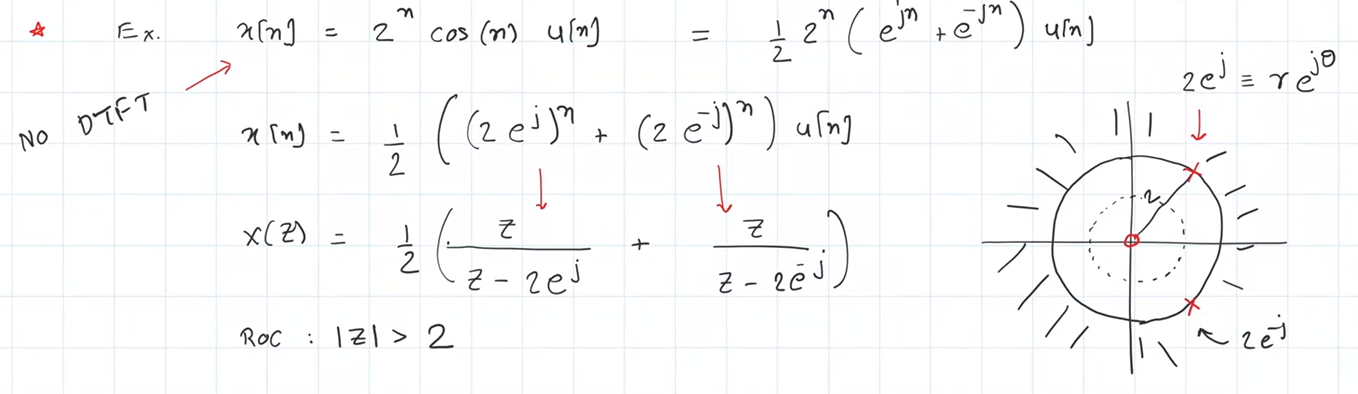 * Ex. x[n] = 2^n cos(n) u[n] = 1/2 2^n (e^{jn} + e^{-jn}) u[n]
NO DTFT
x[n] = 1/2 ((2e^j)^n + (2e^{-j})^n) u[n]
X(z) = 1/2 (z/(z - 2e^j) + z/(z - 2e^{-j}))
ROC : |z| > 2
2e^j ≡ re^{jθ}
2
2e^{-j}